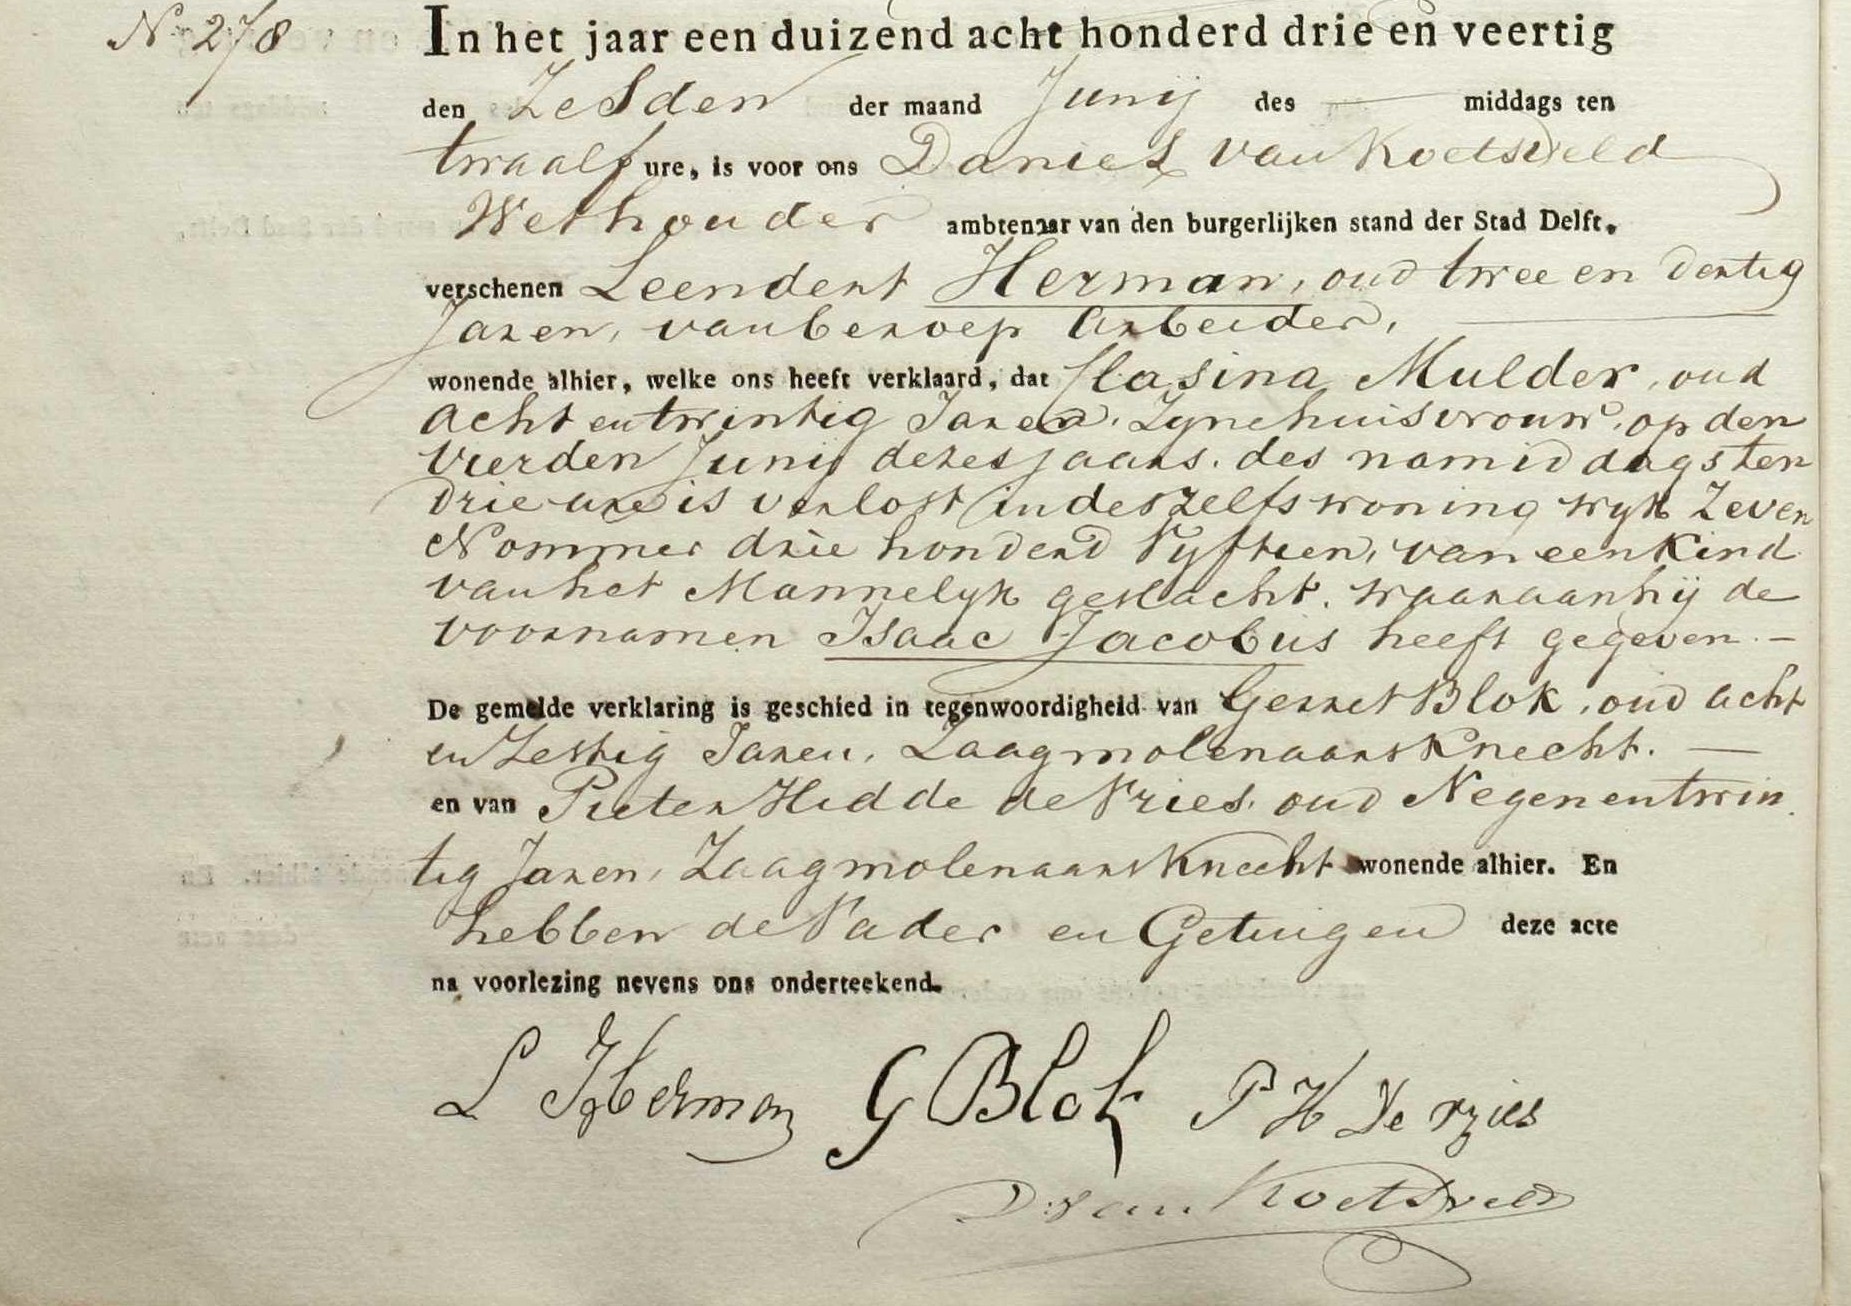 N 278
In het jaar een duizend acht honderd drie en veertig
den Zesden der maand Junij des — middags ten
twaalf ure, is voor ons Daniel van Koetsveld
Wethouder ambtenaar van den burgerlijken stand der Stad Delft,
verschenen Leendert Herman, oud twee en dertig
Jaren, van beroep Arbeider,
wonende alhier, welke ons heeft verklaard, dat Clasina Mulder, oud
acht en twintig Jaren, Zyne huisvrouw, op den
Vierden Junij dezes jaars, des namiddags ten
drie ure is verlost in deszelfs woning wyk Zeven
Nommer drie honderd Vyftien, van een Kind
van het Mannelyk geslacht, waaraan hij de
voornamen Isaac Jacobus heeft gegeven. —
De gemelde verklaring is geschied in tegenwoordigheid van Gerret Blok, oud acht
en Zestig Jaren, Zaagmolenaars Knecht. —
en van Pieter Hidde de Vries, oud Negen en twin
tig Jaren, Zaagmolenaars Knecht wonende alhier. En
hebben de Vader en Getuigen deze acte
na voorlezing nevens ons onderteekend.
L Herman G Blok P H De vries
D: van Koetsveld